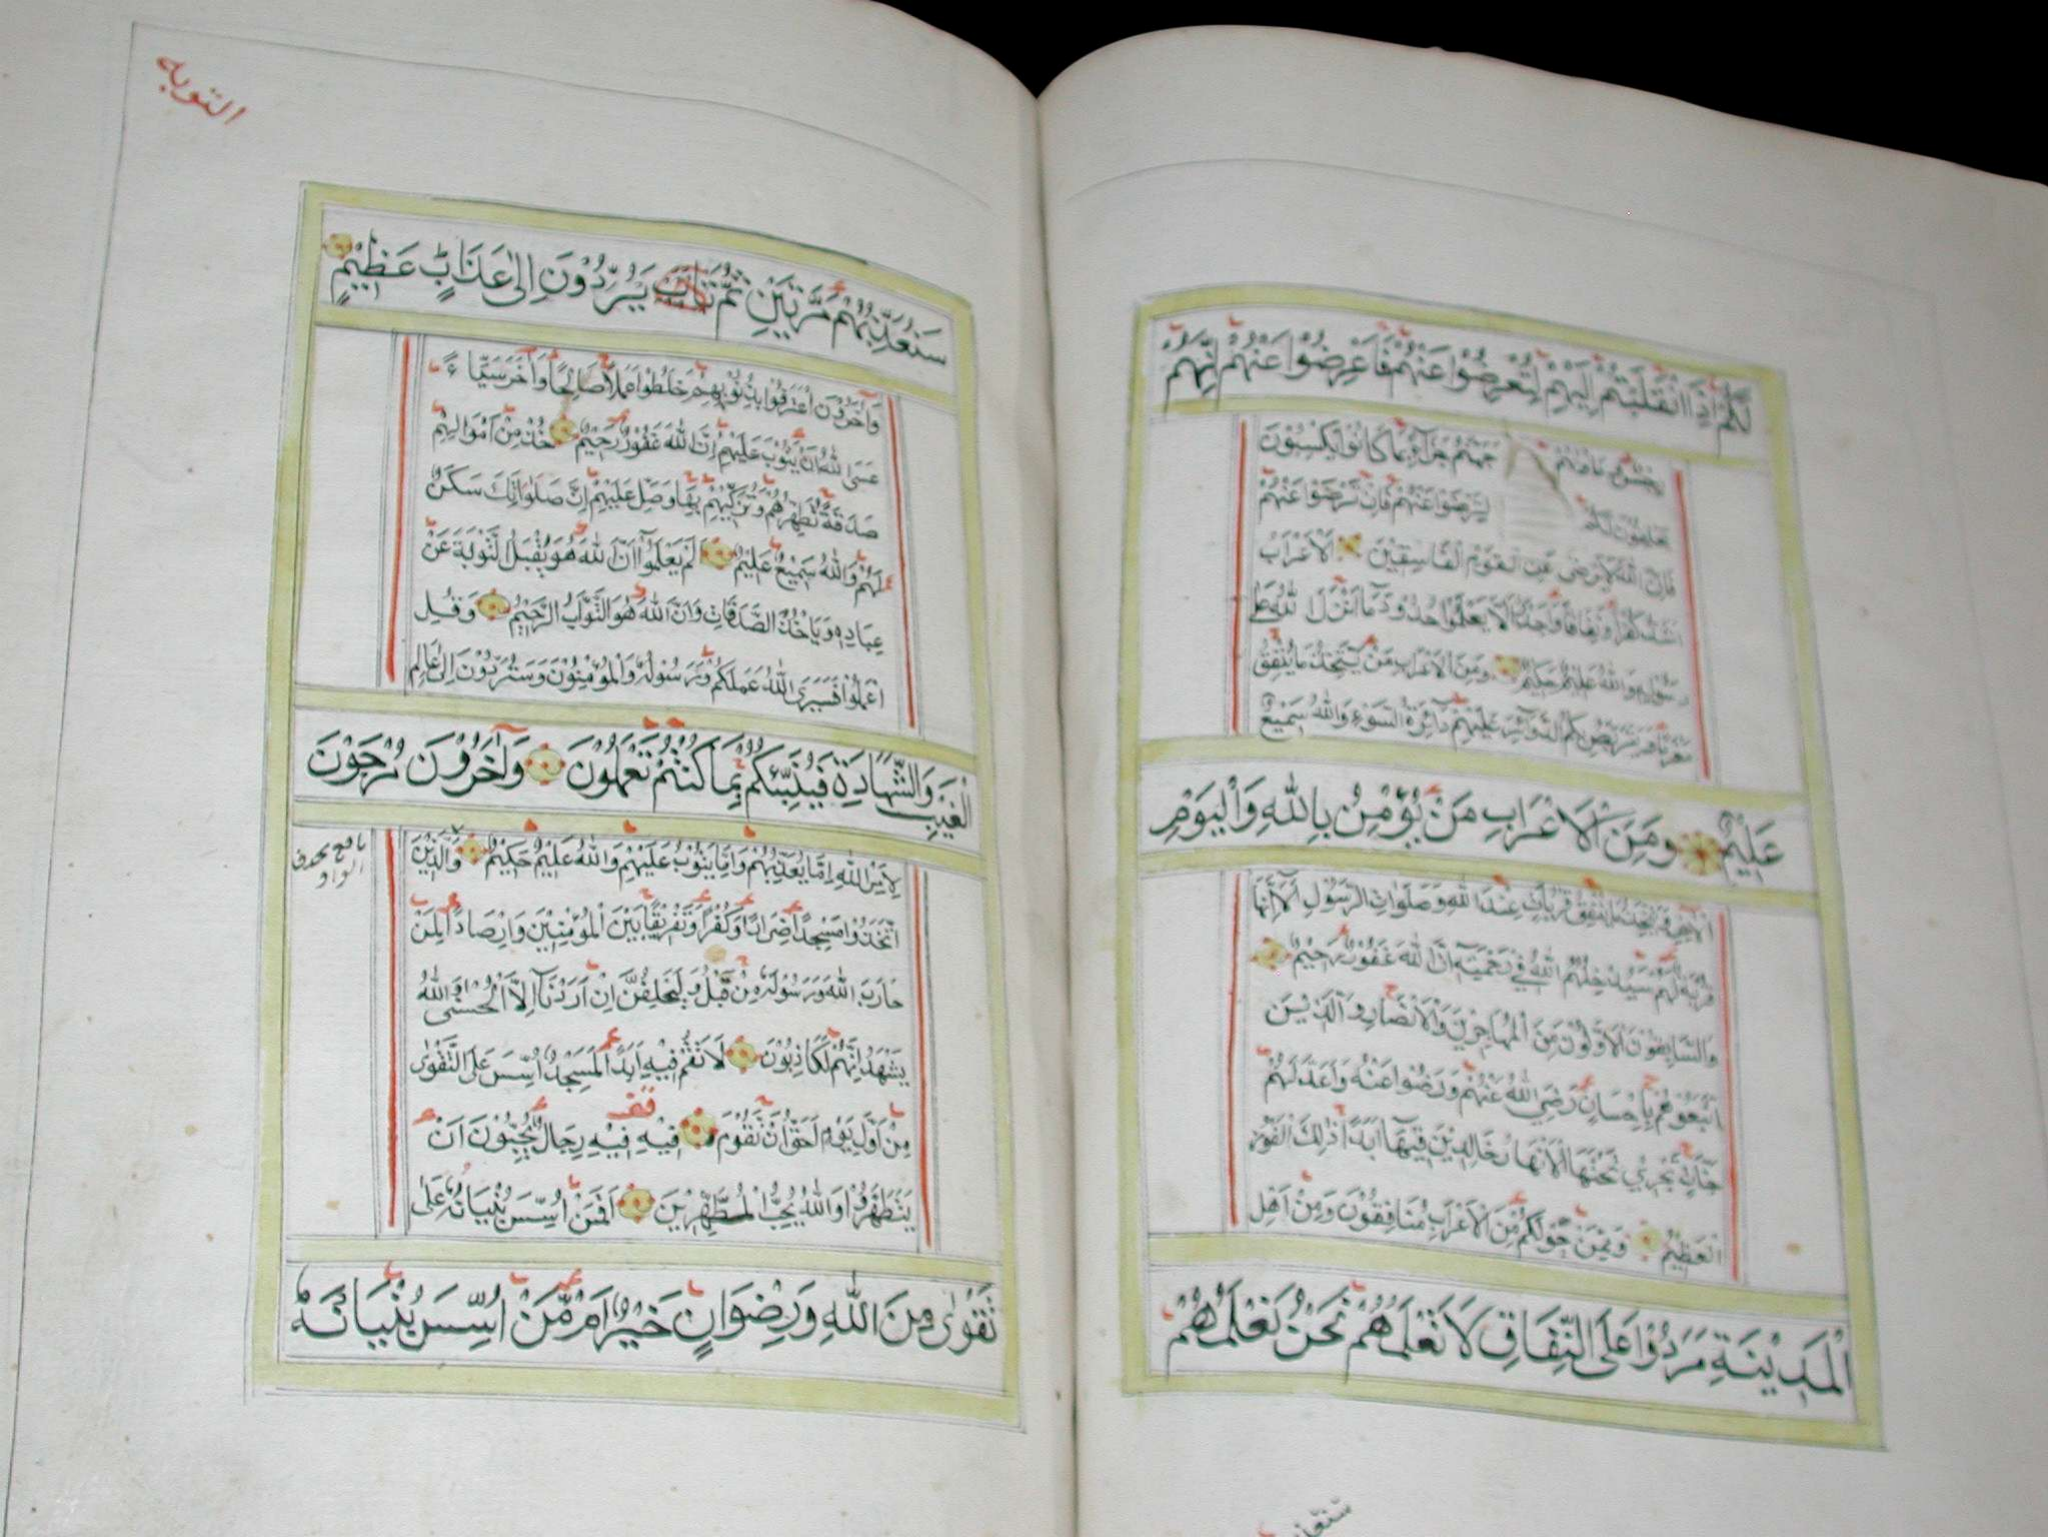 لَكُمْ إِذَا انْقَلَبْتُمْ إِلَيْهِمْ لِتُعْرِضُوْا عَنْهُمْ فَاَعْرِضُوْا عَنْهُمْ اِنَّهُمْ
رِجْسٌ وَمَاْوٰهُمْ جَهَنَّمُ جَزَآءً بِمَا كَانُوْا يَكْسِبُوْنَ
يَحْلِفُوْنَ لَكُمْ لِتَرْضَوْا عَنْهُمْ فَاِنْ تَرْضَوْا عَنْهُمْ
فَاِنَّ اللهَ لَا يَرْضٰى عَنِ الْقَوْمِ الْفَاسِقِيْنَ اَلْاَعْرَابُ
اَشَدُّ كُفْرًا وَنِفَاقًا وَاَجْدَرُ اَلَّا يَعْلَمُوْا حُدُوْدَ مَا اَنْزَلَ اللهُ عَلٰى
رَسُوْلِهٖ وَاللهُ عَلِيْمٌ حَكِيْمٌ وَمِنَ الْاَعْرَابِ مَنْ يَتَّخِذُ مَا يُنْفِقُ
مَغْرَمًا وَيَتَرَبَّصُ بِكُمُ الدَّوَآئِرَ عَلَيْهِمْ دَآئِرَةُ السَّوْءِ وَاللهُ سَمِيْعٌ
عَلِيْمٌ وَمِنَ الْاَعْرَابِ مَنْ يُؤْمِنُ بِاللهِ وَالْيَوْمِ
الْاٰخِرِ وَيَتَّخِذُ مَا يُنْفِقُ قُرُبَاتٍ عِنْدَ اللهِ وَصَلَوَاتِ الرَّسُوْلِ اَلَا اِنَّهَا
قُرْبَةٌ لَهُمْ سَيُدْخِلُهُمُ اللهُ فِيْ رَحْمَتِهٖ اِنَّ اللهَ غَفُوْرٌ رَحِيْمٌ
وَالسَّابِقُوْنَ الْاَوَّلُوْنَ مِنَ الْمُهَاجِرِيْنَ وَالْاَنْصَارِ وَالَّذِيْنَ
اتَّبَعُوْهُمْ بِاِحْسَانٍ رَضِيَ اللهُ عَنْهُمْ وَرَضُوْا عَنْهُ وَاَعَدَّ لَهُمْ
جَنَّاتٍ تَجْرِيْ تَحْتَهَا الْاَنْهَارُ خَالِدِيْنَ فِيْهَا اَبَدًا ذٰلِكَ الْفَوْزُ
الْعَظِيْمُ وَمِمَّنْ حَوْلَكُمْ مِنَ الْاَعْرَابِ مُنَافِقُوْنَ وَمِنْ اَهْلِ
الْمَدِيْنَةِ مَرَدُوْا عَلَى النِّفَاقِ لَا تَعْلَمُهُمْ نَحْنُ نَعْلَمُهُمْ
التوبه
سَنُعَذِّبُهُمْ مَرَّتَيْنِ ثُمَّ يُرَدُّوْنَ اِلٰى عَذَابٍ عَظِيْمٍ
وَاٰخَرُوْنَ اعْتَرَفُوْا بِذُنُوْبِهِمْ خَلَطُوْا عَمَلًا صَالِحًا وَاٰخَرَ سَيِّئًا
عَسَى اللهُ اَنْ يَتُوْبَ عَلَيْهِمْ اِنَّ اللهَ غَفُوْرٌ رَحِيْمٌ خُذْ مِنْ اَمْوَالِهِمْ
صَدَقَةً تُطَهِّرُهُمْ وَتُزَكِّيْهِمْ بِهَا وَصَلِّ عَلَيْهِمْ اِنَّ صَلٰوتَكَ سَكَنٌ
لَهُمْ وَاللهُ سَمِيْعٌ عَلِيْمٌ اَلَمْ يَعْلَمُوْا اَنَّ اللهَ هُوَ يَقْبَلُ التَّوْبَةَ عَنْ
عِبَادِهٖ وَيَاْخُذُ الصَّدَقَاتِ وَاَنَّ اللهَ هُوَ التَّوَّابُ الرَّحِيْمُ وَقُلِ
اعْمَلُوْا فَسَيَرَى اللهُ عَمَلَكُمْ وَرَسُوْلُهٗ وَالْمُؤْمِنُوْنَ وَسَتُرَدُّوْنَ اِلٰى عَالِمِ
الْغَيْبِ وَالشَّهَادَةِ فَيُنَبِّئُكُمْ بِمَا كُنْتُمْ تَعْمَلُوْنَ وَاٰخَرُوْنَ مُرْجَوْنَ
لِاَمْرِ اللهِ اِمَّا يُعَذِّبُهُمْ وَاِمَّا يَتُوْبُ عَلَيْهِمْ وَاللهُ عَلِيْمٌ حَكِيْمٌ وَالَّذِيْنَ
نافع بحذف
الواو
اتَّخَذُوْا مَسْجِدًا ضِرَارًا وَكُفْرًا وَتَفْرِيْقًا بَيْنَ الْمُؤْمِنِيْنَ وَاِرْصَادًا لِمَنْ
حَارَبَ اللهَ وَرَسُوْلَهٗ مِنْ قَبْلُ وَلَيَحْلِفُنَّ اِنْ اَرَدْنَآ اِلَّا الْحُسْنٰى وَاللهُ
يَشْهَدُ اِنَّهُمْ لَكَاذِبُوْنَ لَا تَقُمْ فِيْهِ اَبَدًا لَمَسْجِدٌ اُسِّسَ عَلَى التَّقْوٰى
مِنْ اَوَّلِ يَوْمٍ اَحَقُّ اَنْ تَقُوْمَ فِيْهِ فِيْهِ رِجَالٌ يُحِبُّوْنَ اَنْ
يَتَطَهَّرُوْا وَاللهُ يُحِبُّ الْمُطَّهِّرِيْنَ اَفَمَنْ اُسِّسَ بُنْيَانُهٗ عَلٰى
تَقْوٰى مِنَ اللهِ وَرِضْوَانٍ خَيْرٌ اَمْ مَنْ اُسِّسَ بُنْيَانُهٗ